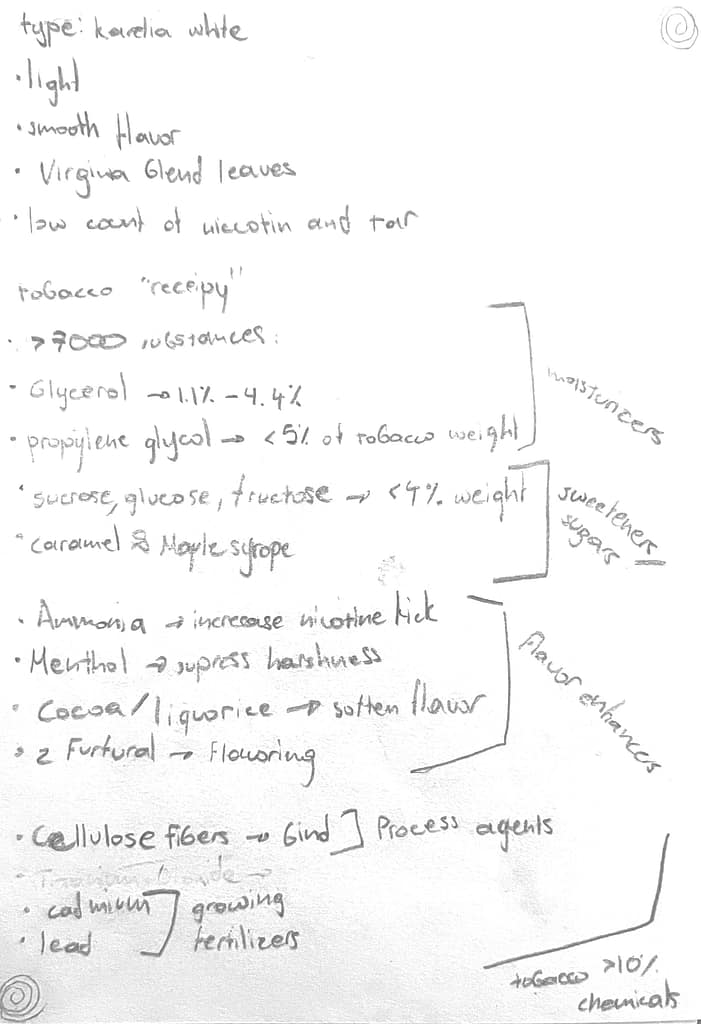 type: karelia white
• light
• smooth flavor
• Virgina blend leaves
• low count of niccotin and tar
tobacco "receipy"
• >7000 substances:
• Glycerol → 1.1% – 4.4%
• propylene glycol → <5% of tobacco weight
moisturizers
• sucrose, glucose, fructose → <4% weight
• caramel & Maple syrope
sweeteners
sugars
• Ammonia → increase nicotine kick
• Menthol → supress harshness
• Cocoa/liquorice → soften flavor
• 2 Furfural → Flavoring
flavor enhances
• Cellulose fibers → bind ] Process agents
• cadmium ] growing
• lead ] fertilizers
tobacco >10%
chemicals